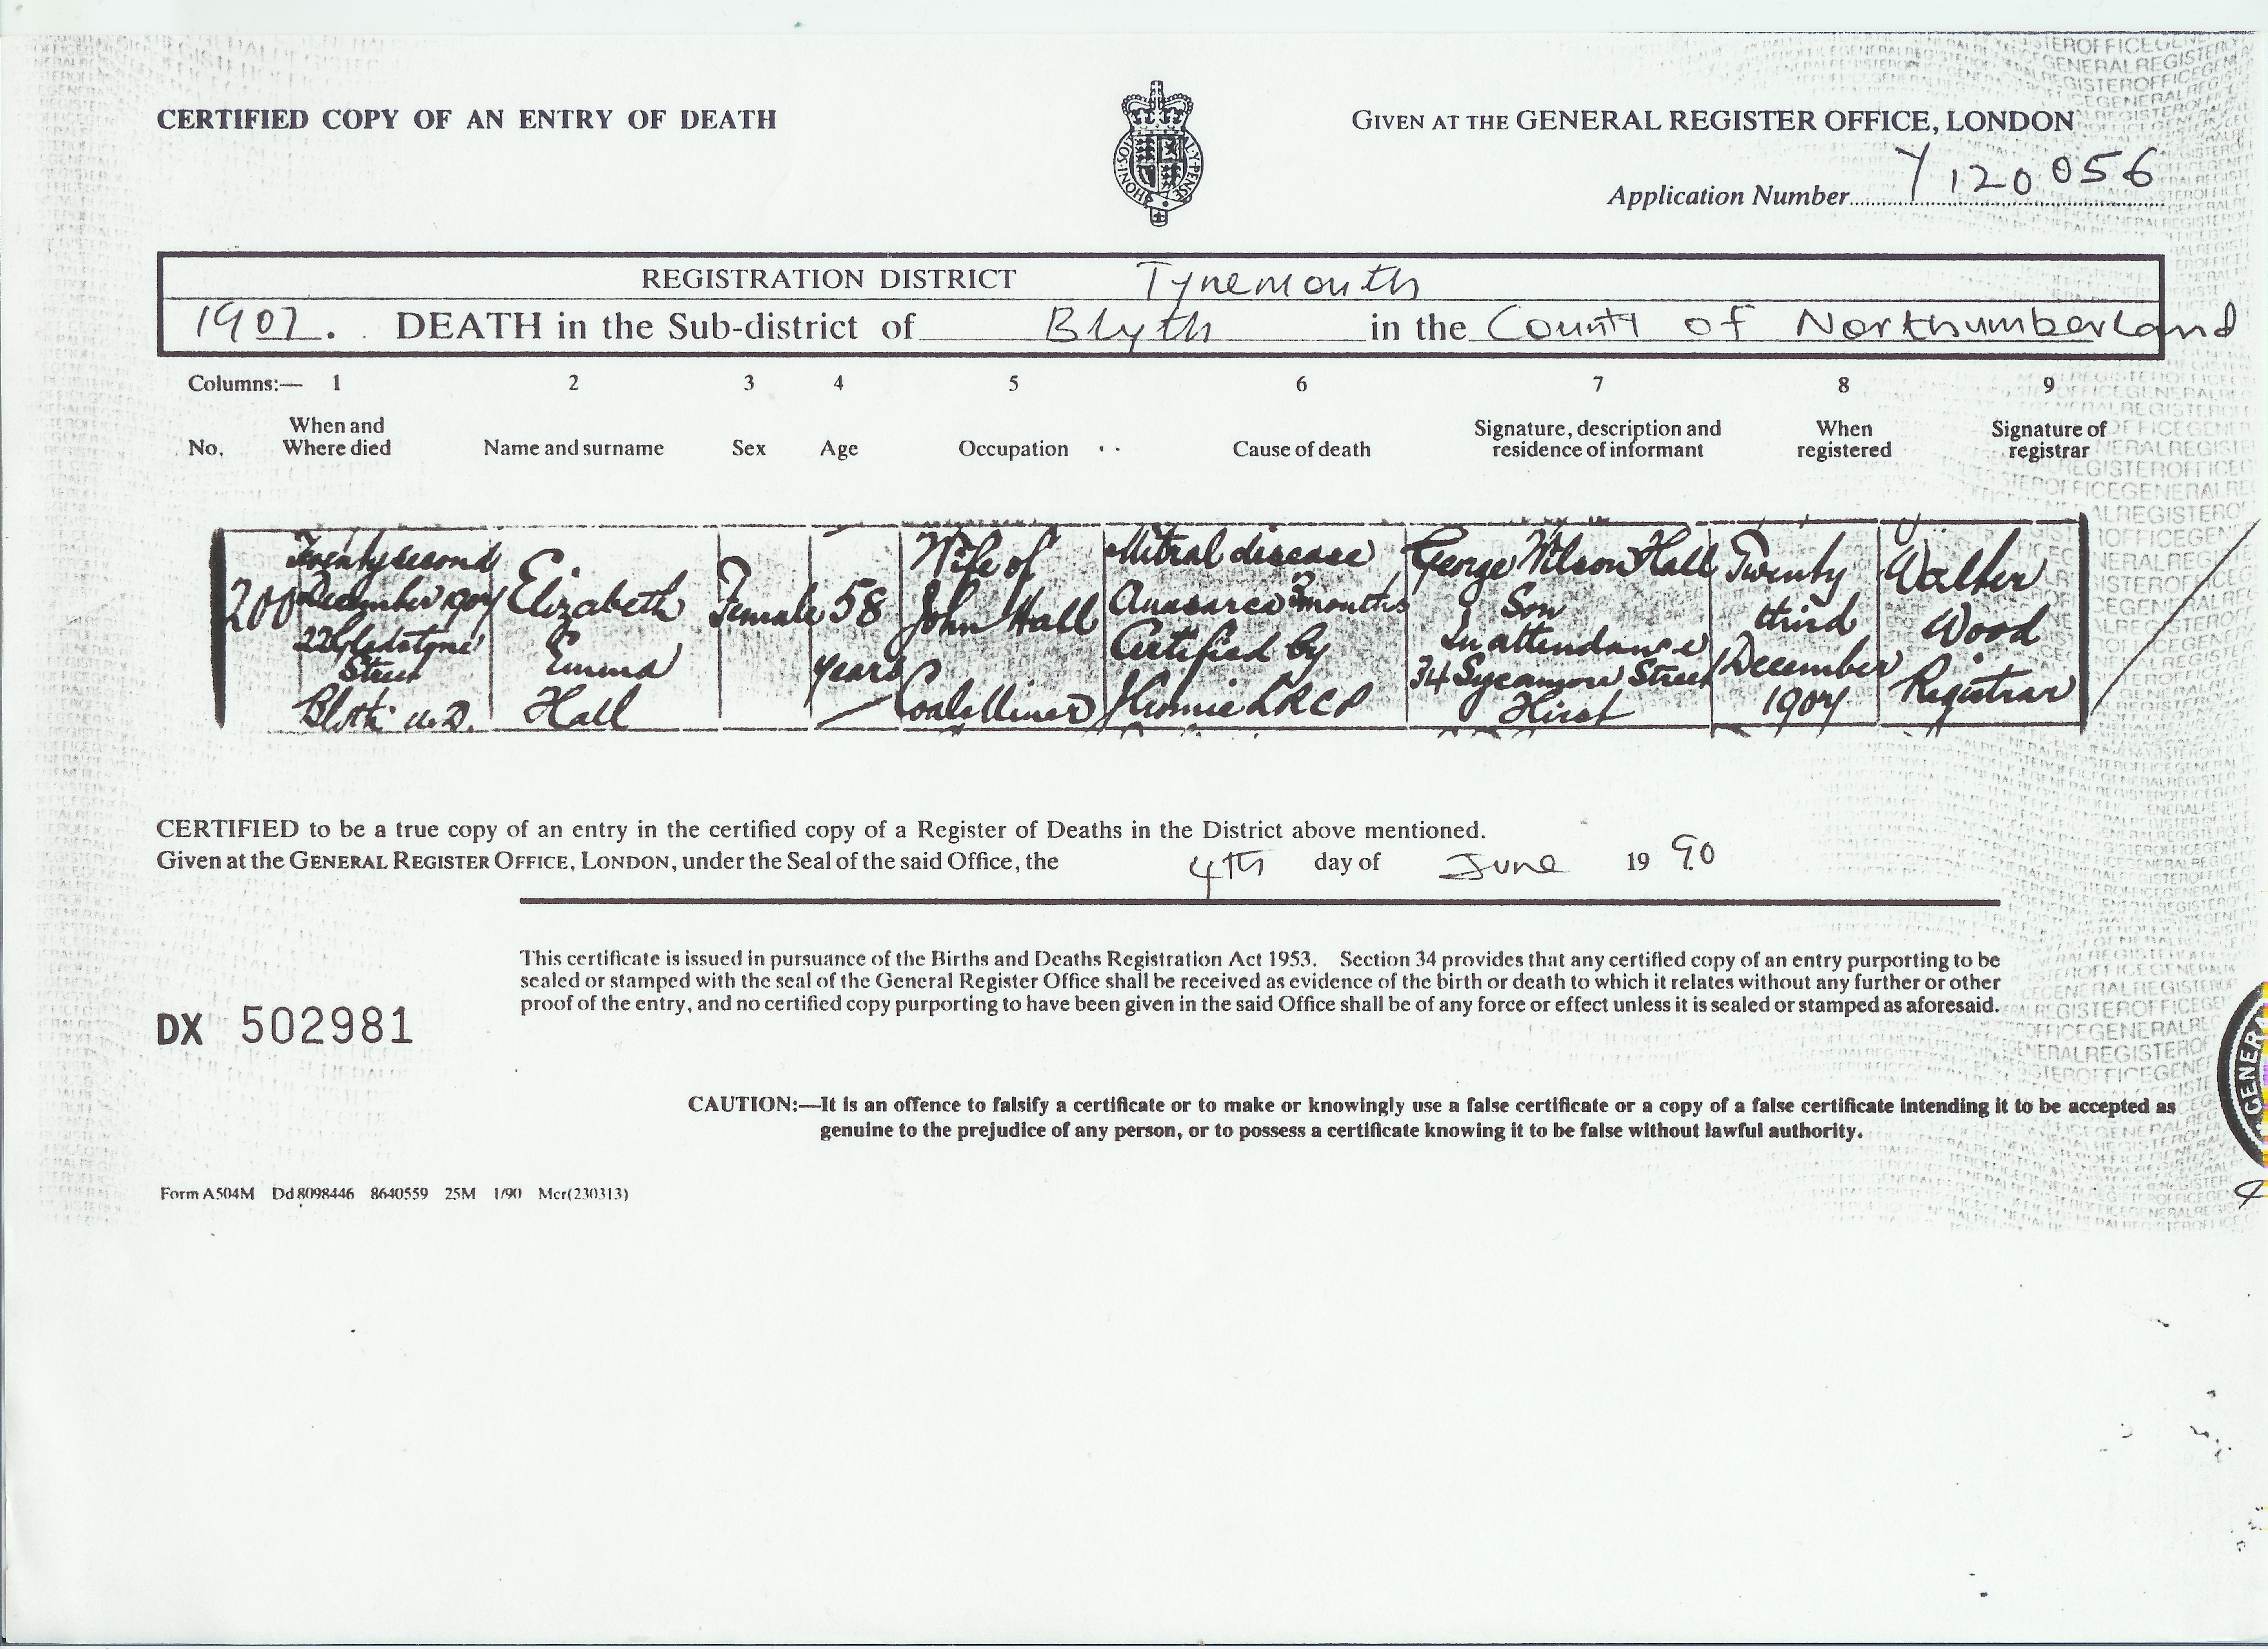 CERTIFIED COPY OF AN ENTRY OF DEATH
GIVEN AT THE GENERAL REGISTER OFFICE, LONDON
Application Number Y120056
REGISTRATION DISTRICT Tynemouth
1907. DEATH in the Sub-district of Blyth in the County of Northumberland
Columns:— 1 2 3 4 5 6 7 8 9
No. When and Where died Name and surname Sex Age Occupation Cause of death Signature, description and residence of informant When registered Signature of registrar
200
Twenty second
December 1907
22 Gladstone
Street
Blyth U.D.
Elizabeth
Emma
Hall
Female
58
years
Wife of
John Hall
Coal Miner
Mitral disease
Anasarca 3 months
Certified by
LRCP
George Wilson Hall
Son
In attendance
34 Sycamore Street
Hirst
Twenty
third
December
1907
Walter
Wood
Registrar
CERTIFIED to be a true copy of an entry in the certified copy of a Register of Deaths in the District above mentioned.
Given at the GENERAL REGISTER OFFICE, LONDON, under the Seal of the said Office, the 4th day of June 1990
This certificate is issued in pursuance of the Births and Deaths Registration Act 1953. Section 34 provides that any certified copy of an entry purporting to be
sealed or stamped with the seal of the General Register Office shall be received as evidence of the birth or death to which it relates without any further or other
proof of the entry, and no certified copy purporting to have been given in the said Office shall be of any force or effect unless it is sealed or stamped as aforesaid.
DX 502981
CAUTION:—It is an offence to falsify a certificate or to make or knowingly use a false certificate or a copy of a false certificate intending it to be accepted as
genuine to the prejudice of any person, or to possess a certificate knowing it to be false without lawful authority.
Form A504M Dd 8098446 8640559 25M 1/90 Mcr(230313)
GENERA